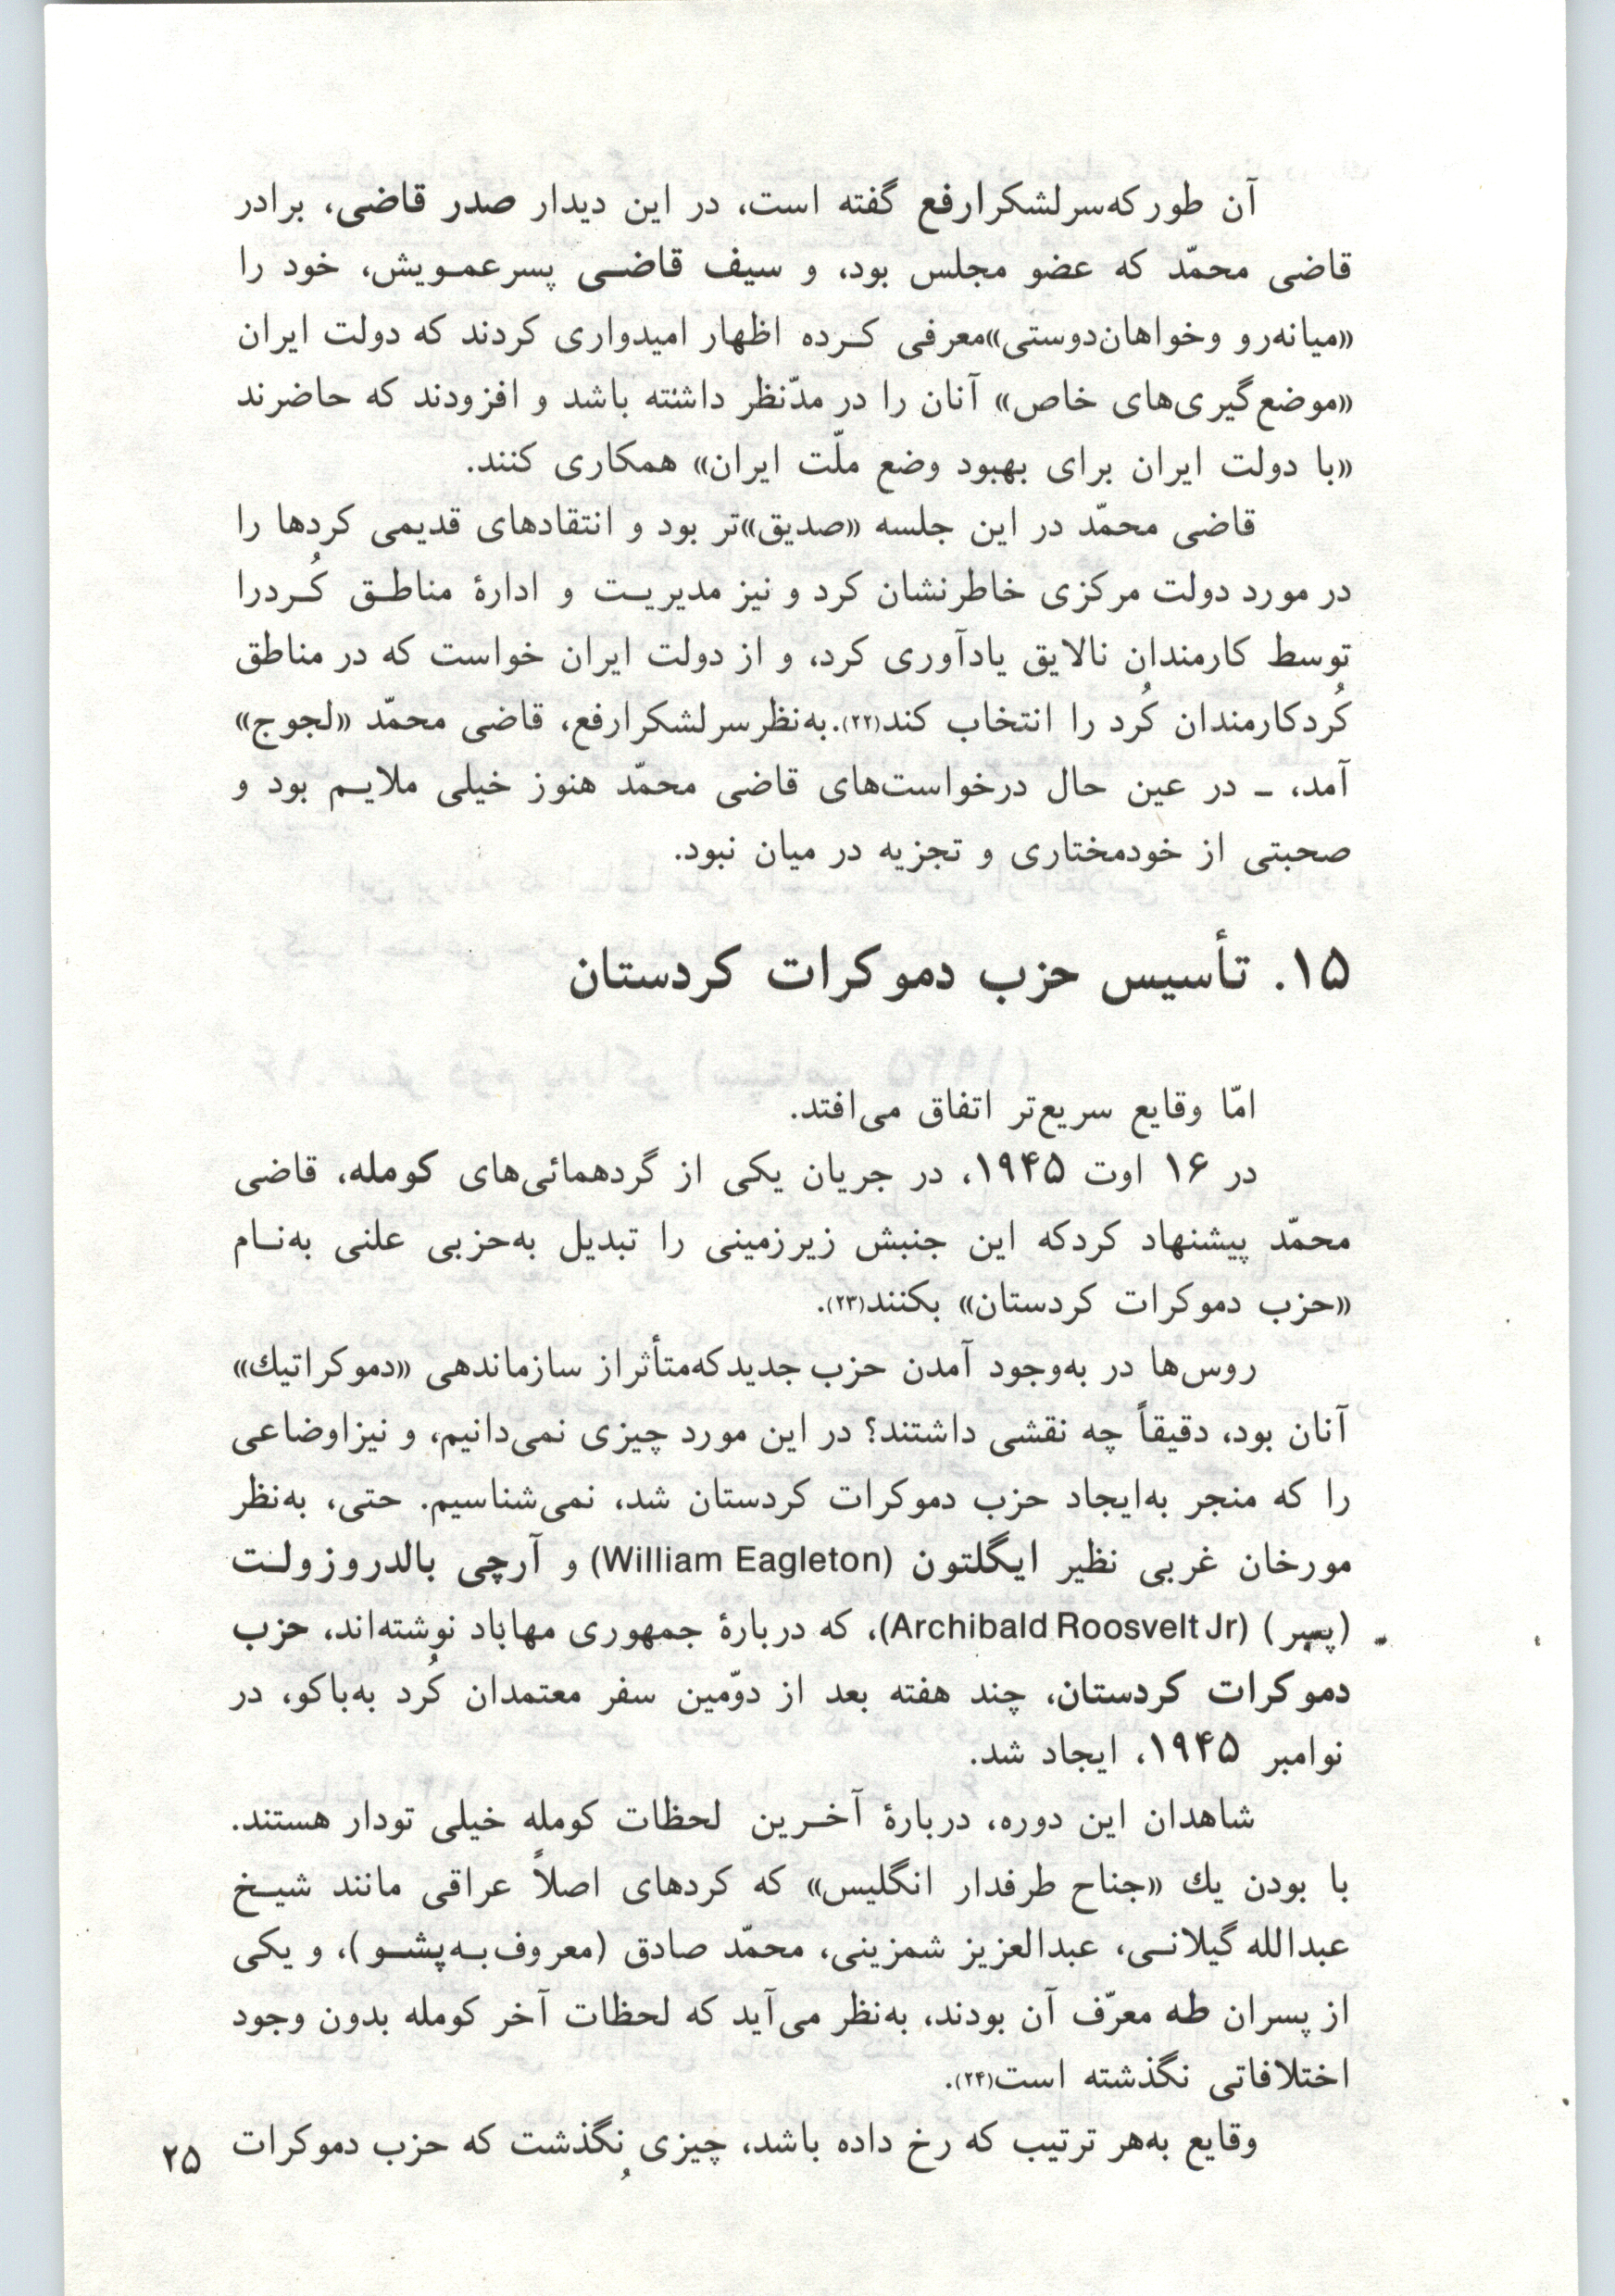 آن طور که سرلشکر ارفع گفته است، در این دیدار صدر قاضی، برادر
قاضی محمّد که عضو مجلس بود، و سیف قاضی پسرعمویش، خود را
«میانه‌رو و خواهان دوستی» معرفی کرده اظهار امیدواری کردند که دولت ایران
«موضع‌گیری‌های خاص» آنان را در مدّنظر داشته باشد و افزودند که حاضرند
«با دولت ایران برای بهبود وضع ملّت ایران» همکاری کنند.
قاضی محمّد در این جلسه «صدیق»تر بود و انتقادهای قدیمی کردها را
در مورد دولت مرکزی خاطرنشان کرد و نیز مدیریت و ادارهٔ مناطق کُرد را
توسط کارمندان نالایق یادآوری کرد، و از دولت ایران خواست که در مناطق
کُرد کارمندان کُرد را انتخاب کند(۲۲). به‌نظر سرلشکر ارفع، قاضی محمّد «لجوج»
آمد، ـ در عین حال درخواست‌های قاضی محمّد هنوز خیلی ملایم بود و
صحبتی از خودمختاری و تجزیه در میان نبود.
۱۵. تأسیس حزب دموکرات کردستان
امّا وقایع سریع‌تر اتفاق می‌افتد.
در ۱۶ اوت ۱۹۴۵، در جریان یکی از گردهمائی‌های کومله، قاضی
محمّد پیشنهاد کرد که این جنبش زیرزمینی را تبدیل به‌حزبی علنی به‌نام
«حزب دموکرات کردستان» بکنند(۲۳).
روس‌ها در به‌وجود آمدن حزب جدید که متأثر از سازماندهی «دموکراتیك»
آنان بود، دقیقاً چه نقشی داشتند؟ در این مورد چیزی نمی‌دانیم، و نیز اوضاعی
را که منجر به‌ایجاد حزب دموکرات کردستان شد، نمی‌شناسیم. حتی، به‌نظر
مورخان غربی نظیر ایگلتون (William Eagleton) و آرچی بالدروزولت
(پسر) (Archibald Roosvelt Jr)، که دربارهٔ جمهوری مهاباد نوشته‌اند، حزب
دموکرات کردستان، چند هفته بعد از دوّمین سفر معتمدان کُرد به‌باکو، در
نوامبر ۱۹۴۵، ایجاد شد.
شاهدان این دوره، دربارهٔ آخرین لحظات کومله خیلی تودار هستند.
با بودن یك «جناح طرفدار انگلیس» که کردهای اصلاً عراقی مانند شیخ
عبدالله گیلانی، عبدالعزیز شمزینی، محمّد صادق (معروف به پشو)، و یکی
از پسران طه معرّف آن بودند، به‌نظر می‌آید که لحظات آخر کومله بدون وجود
اختلافاتی نگذشته است(۲۴).
وقایع به‌هر ترتیب که رخ داده باشد، چیزی نگذشت که حزب دموکرات
۲۵